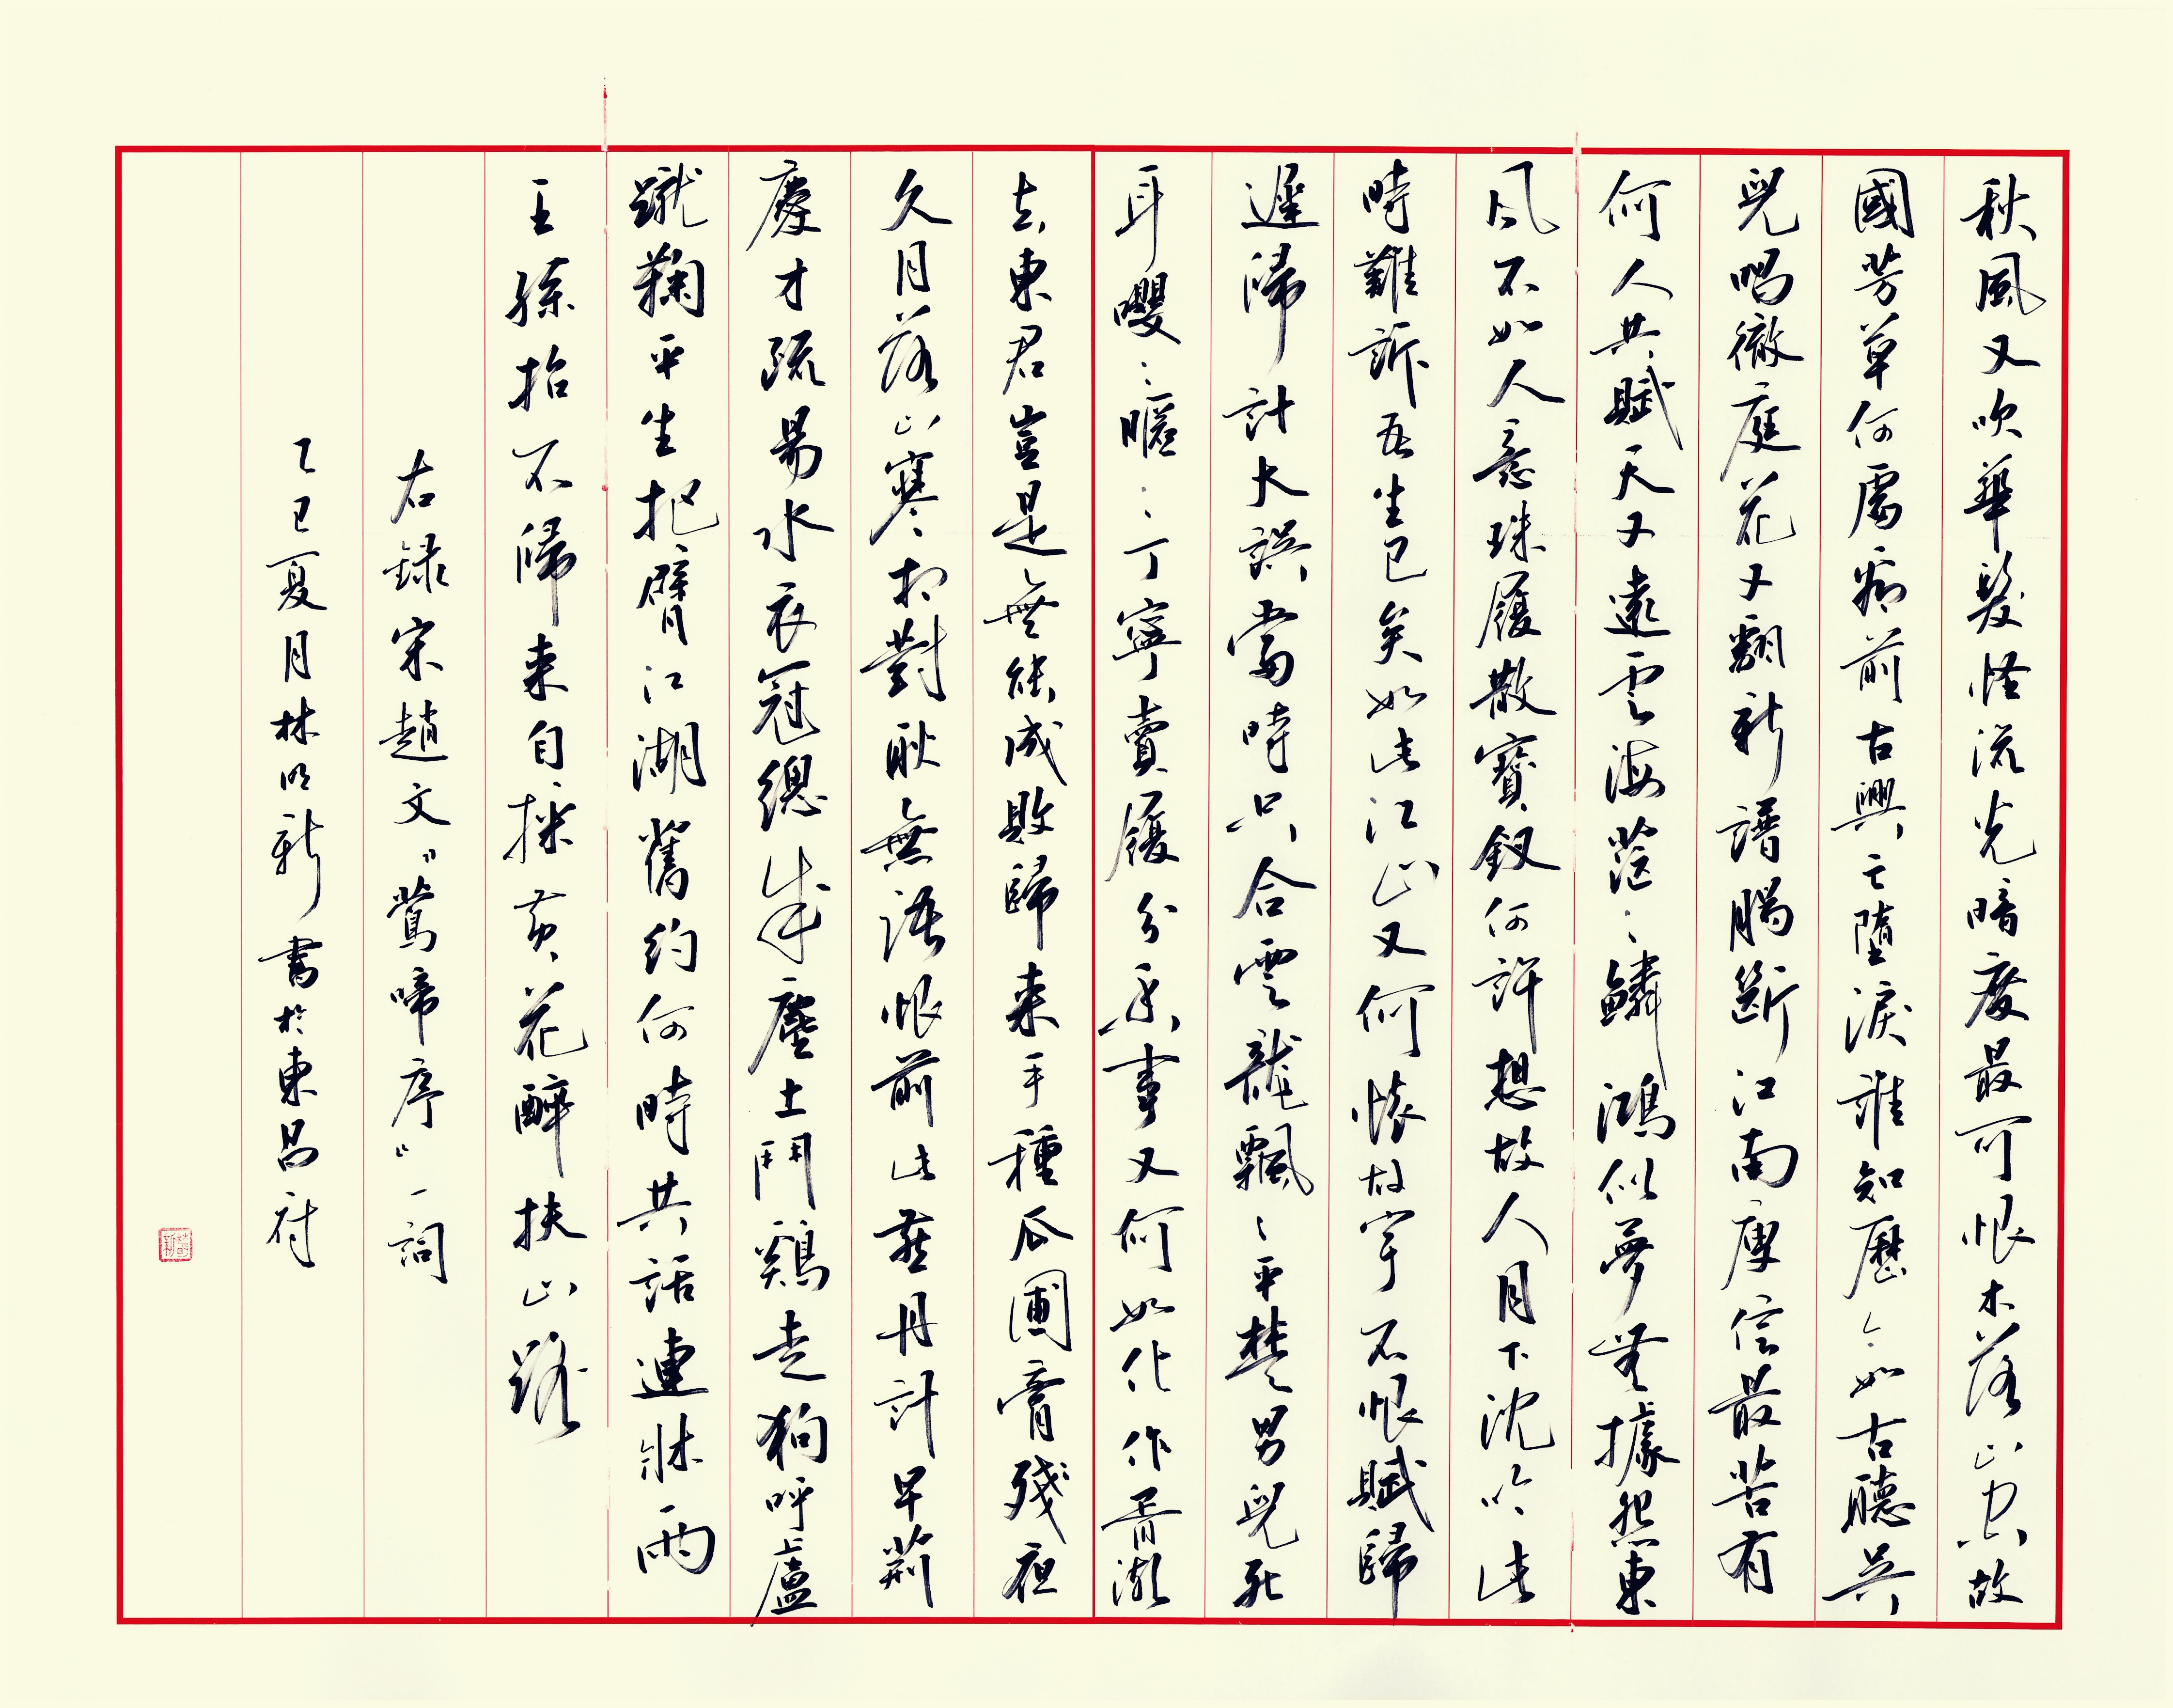 秋風又吹華髮怪流光暗度最可恨木落山空故
國芳草何處看前古興亡墮淚誰知歷々如古聽吳
兒唱徹庭花又翻新譜腸斷江南庾信最苦有
何人共賦天又遠雲海茫々鱗鴻似夢無據怨東
風不如人意珠履散寶釵何許想故人月下沈吟此
時難訴吾生已矣如此江山又何懷故宇不恨賦歸
遲歸計大誤當時只合雲龍飄々平楚男兒死
耳嚶々暱々丁寧賣履分香事又何如化作胥潮
去東君豈是無能成敗歸來手種瓜圃膏殘夜
久月落山寒相對耿無語恨前此燕丹計早荊
慶才疏易水衣冠總成塵土鬥鷄走狗呼盧
蹴鞠平生把臂江湖舊約何時共話連牀雨
王孫招不歸來自採黃花醉扶山路
右録宋趙文"鶯啼序"一詞
乙巳夏月林明新書於東昌府